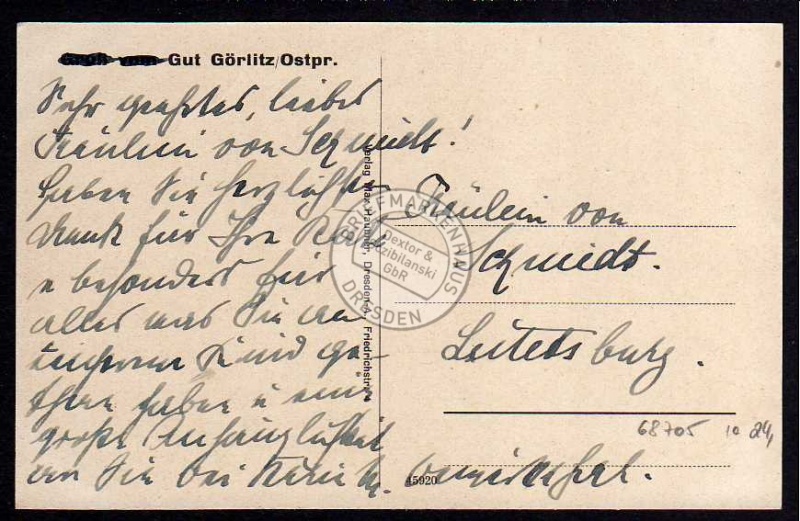 Gut Görlitz/Ostpr.
Sehr geehrtes, liebes
Fräulein von Schmidt!
Haben Sie herzlichsten
Dank für Ihre Karte
u besonders für
alles was Sie an
unserem Kind ge-
than haben u eine
große Anhänglichkeit
an Sie bei
Verlag Max Dresden-A. Friedrichstr.
BRIEFMARKENHAUS
Dextor &
GbR
DRESDEN
Fräulein von
Schmidt.
68705 10 24,
45920